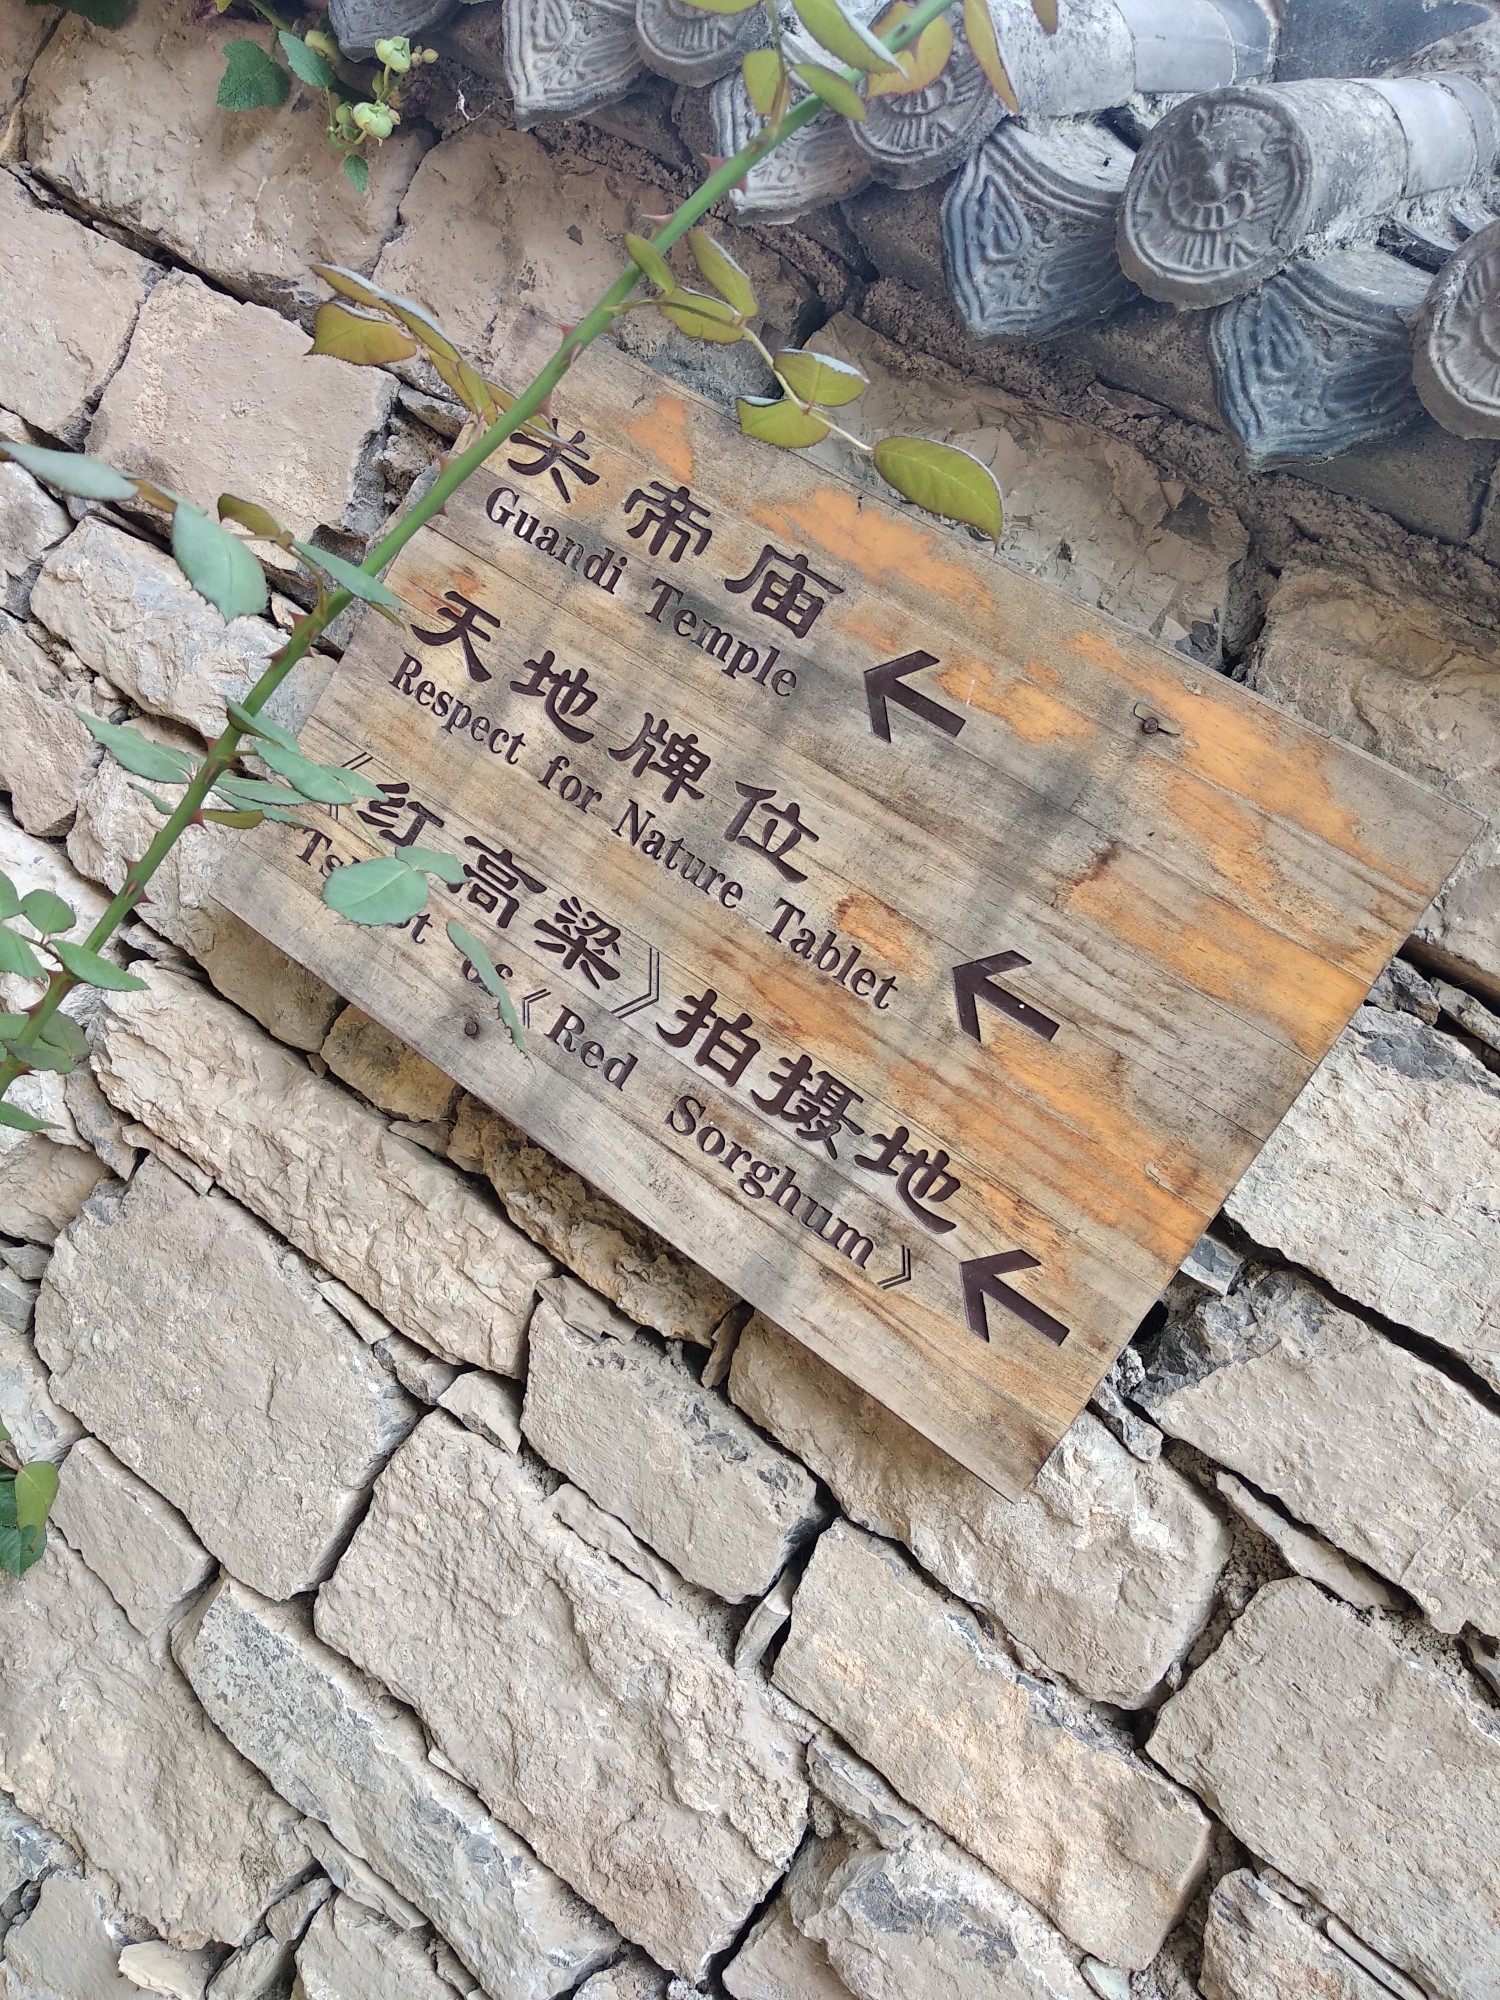 关帝庙
Guandi Temple
天地牌位
Respect for Nature Tablet
《红高梁》拍摄地
of《Red Sorghum》